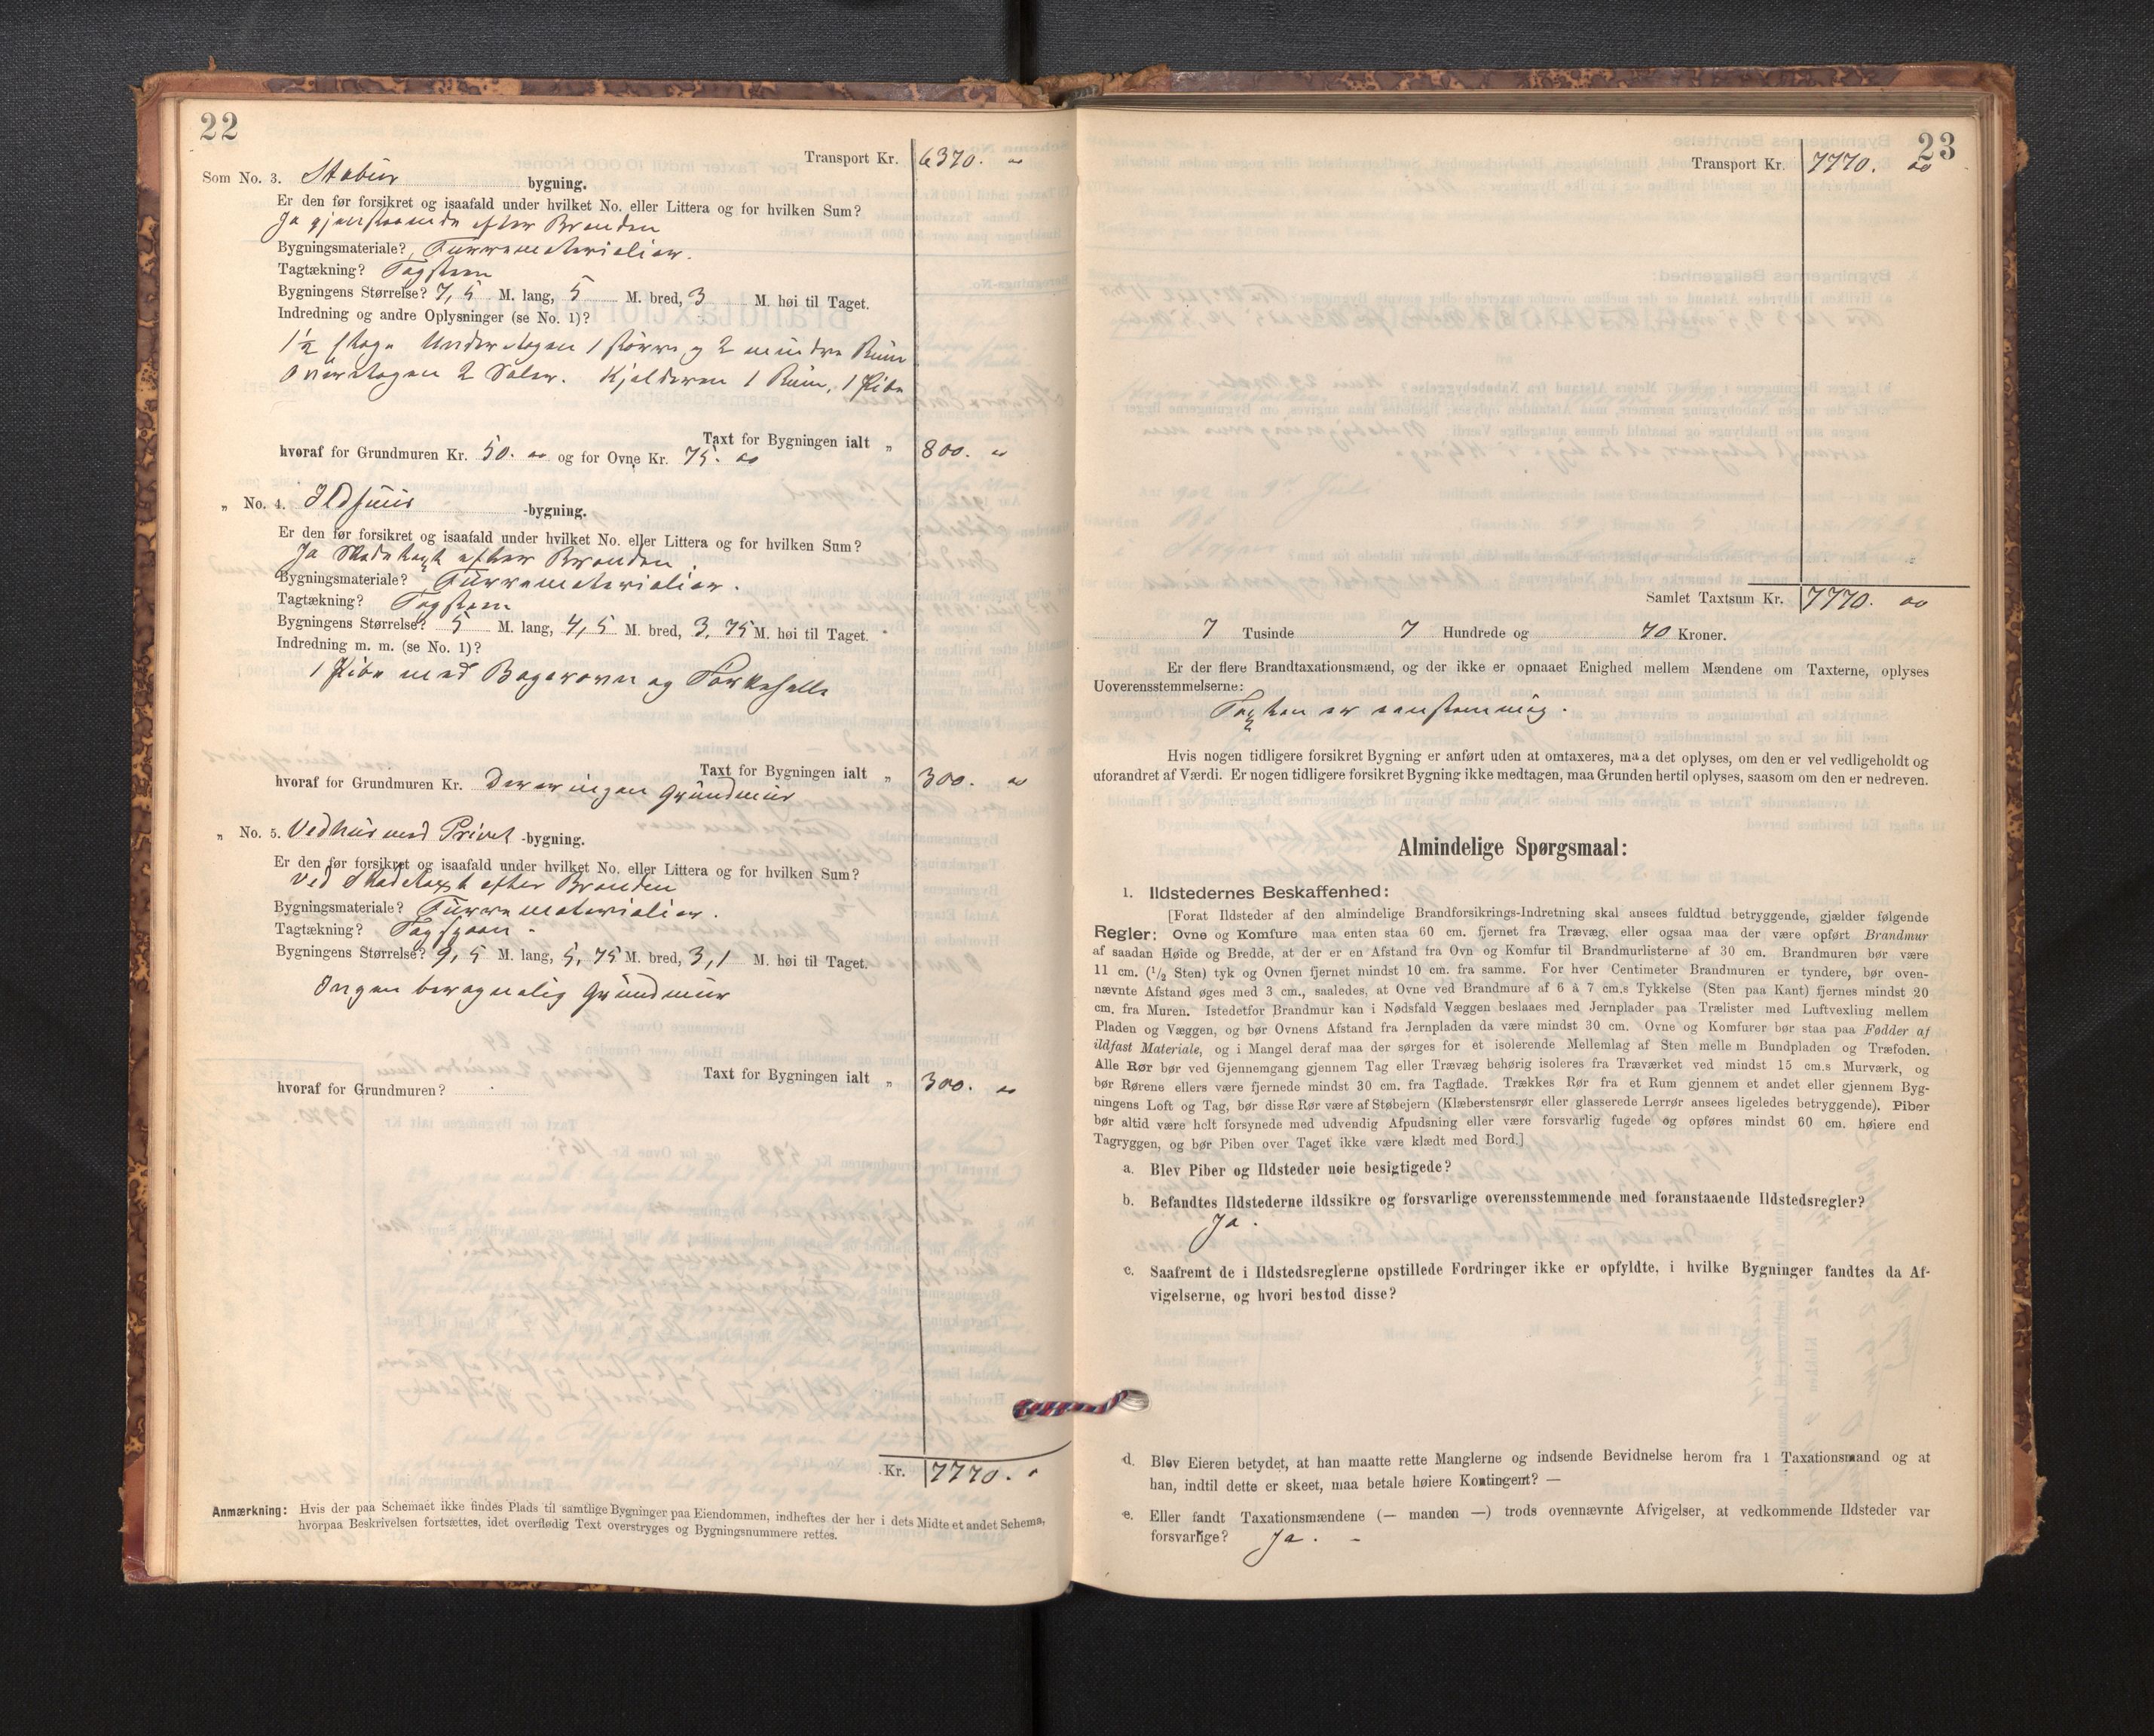 22
Transport Kr. 6370. "
Som No. 3. Stabur bygning.
Er den før forsikret og isaafald under hvilket No. eller Littera og for hvilken Sum?
Ja gjenstaaende efter Branden
Bygningsmateriale? Furrematerialier.
Tagtækning? Tagsten
Bygningens Størrelse? 7,5 M. lang, 5 M. bred, 3 M. høi til Taget.
Indredning og andre Oplysninger (se No. 1)?
1½ Etage Underetagen 1 større og 2 mindre Rum
Overetagen 2 Saler. Kjelderen 1 Rum, 1 Pibe
Taxt for Bygningen ialt „ 800. "
hvoraf for Grundmuren Kr. 50. oo og for Ovne Kr. 75. oo
„ No. 4. Ildhuus -bygning.
Er den før forsikret og isaafald under hvilket No. eller Littera og for hvilken Sum?
Ja Skadetaxt efter Branden
Bygningsmateriale? Furrematerialier.
Tagtækning? Tagsten
Bygningens Størrelse? 5 M. lang, 4,5 M. bred, 3,75 M. høi til Taget.
Indredning m. m. (se No. 1)?
1 Pibe med Bagerovn og Tørkehelle
Taxt for Bygningen ialt „ 300. "
hvoraf for Grundmuren Kr. Der er ingen Grundmur
„ No. 5. Vedhus med Privet -bygning.
Er den før forsikret og isaafald under hvilket No. eller Littera og for hvilken Sum?
Ved Skadetaxt efter Branden
Bygningsmateriale? Furrematerialier.
Tagtækning? Tagspaan
Bygningens Størrelse? 9,5 M. lang, 5,75 M. bred, 3,1 M. høi til Taget.
Ingen beregnelig Grundmur
Taxt for Bygningen ialt „ 300. oo
hvoraf for Grundmuren?
Kr. 7770. "
Anmærkning: Hvis der paa Schemaet ikke findes Plads til samtlige Bygninger paa Eiendommen, indheftes der her i dets Midte et andet Schema,
hvorpaa Beskrivelsen fortsættes, idet overflødig Text overstryges og Bygningsnummere rettes.
23
Transport Kr. 7770. oo
Samlet Taxtsum Kr. 7770. oo
7 Tusinde 7 Hundrede og 70 Kroner.
Er der flere Brandtaxationsmænd, og der ikke er opnaaet Enighed mellem Mændene om Taxterne, oplyses
Uoverensstemmelserne:
Taxten er eenstemmig.
Hvis nogen tidligere forsikret Bygning er anført uden at omtaxeres, maa det oplyses, om den er vel vedligeholdt og
uforandret af Værdi. Er nogen tidligere forsikret Bygning ikke medtagen, maa Grunden hertil oplyses, saasom om den er nedreven.
Almindelige Spørgsmaal:
1. Ildstedernes Beskaffenhed:
[Forat Ildsteder af den almindelige Brandforsikrings-Indretning skal ansees fuldtud betryggende, gjælder følgende
Regler: Ovne og Komfure maa enten staa 60 cm. fjernet fra Trævæg, eller ogsaa maa der være opført Brandmur
af saadan Høide og Bredde, at der er en Afstand fra Ovn og Komfur til Brandmurlisterne af 30 cm. Brandmuren bør være
11 cm. (1/2 Sten) tyk og Ovnen fjernet mindst 10 cm. fra samme. For hver Centimeter Brandmuren er tyndere, bør oven-
nævnte Afstand øges med 3 cm., saaledes, at Ovne ved Brandmure af 6 à 7 cm.s Tykkelse (Sten paa Kant) fjernes mindst 20
cm. fra Muren. Istedetfor Brandmur kan i Nødsfald Væggen beslaaes med Jernplader paa Trælister med Luftvexling mellem
Pladen og Væggen, og bør Ovnens Afstand fra Jernpladen da være mindst 30 cm. Ovne og Komfurer bør staa paa Fødder af
ildfast Materiale, og i Mangel deraf maa der sørges for et isolerende Mellemlag af Sten mellem Bundpladen og Træfoden.
Alle Rør bør ved Gjennemgang gjennem Tag eller Trævæg behørig isoleres fra Træværket ved mindst 15 cm.s Murværk, og
bør Rørene ellers være fjernede mindst 30 cm. fra Tagflade. Trækkes Rør fra et Rum gjennem et andet eller gjennem Byg-
ningens Loft og Tag, bør disse Rør være af Støbejern (Klæberstensrør eller glasserede Lerrør ansees ligeledes betryggende). Piber
bør altid være helt forsynede med udvendig Afpudsning eller være forsvarlig fugede og opføres mindst 60 cm. høiere end
Tagryggen, og bør Piben over Taget ikke være klædt med Bord.]
a. Blev Piber og Ildsteder nøie besigtigede?
b. Befandtes Ildstederne ildssikre og forsvarlige overensstemmende med foranstaaende Ildstedsregler?
Ja.
c. Saafremt de i Ildstedsreglerne opstillede Fordringer ikke er opfyldte, i hvilke Bygninger fandtes da Af-
vigelserne, og hvori bestod disse?
d. Blev Eieren betydet, at han maatte rette Manglerne og indsende Bevidnelse herom fra 1 Taxationsmand og at
han, indtil dette er skeet, maa betale høiere Kontingent? —
e. Eller fandt Taxationsmændene (— manden —) trods ovennævnte Afvigelser, at vedkommende Ildsteder var
forsvarlige? Ja. -